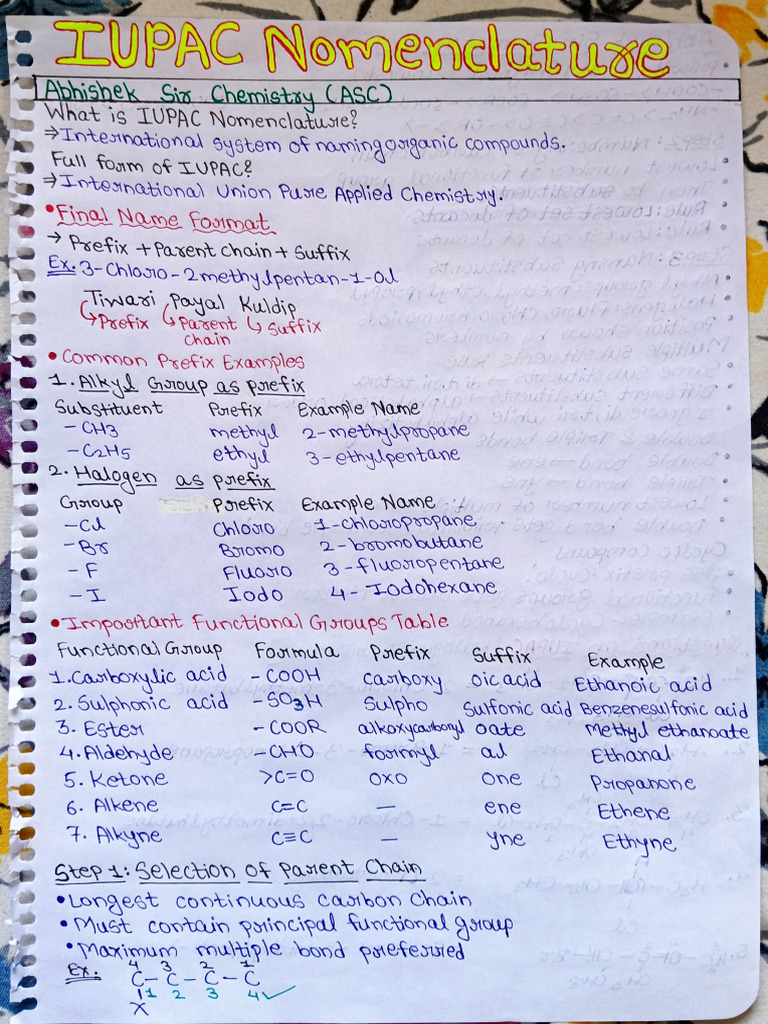 IUPAC Nomenclature
Abhishek Sir Chemistry (ASC)
What is IUPAC Nomenclature?
→International system of naming organic compounds.
Full form of IUPAC?
→International Union Pure Applied Chemistry.
•Final Name Format
→ Prefix + Parent chain + Suffix
Ex. 3-Chloro-2methylpentan-1-ol
Tiwari Payal Kuldip
↳Prefix ↳Parent chain ↳Suffix
•Common Prefix Examples
1. Alkyl Group as prefix
Substituent Prefix Example Name
-CH3 methyl 2-methylpropane
-C2H5 ethyl 3-ethylpentane
2. Halogen as prefix
Group Prefix Example Name
-Cl Chloro 1-chloropropane
-Br Bromo 2-bromobutane
-F Fluoro 3-fluoropentane
-I Iodo 4-Iodohexane
•Important Functional Groups Table
Functional Group Formula Prefix Suffix Example
1.Carboxylic acid -COOH carboxy oic acid Ethanoic acid
2. Sulphonic acid -SO3H Sulpho Sulfonic acid Benzenesulfonic acid
3. Ester -COOR alkoxycarbonyl oate Methyl ethanoate
4.Aldehyde -CHO formyl al Ethanal
5. Ketone >C=O oxo one Propanone
6. Alkene C=C — ene Ethene
7. Alkyne C≡C — yne Ethyne
Step 1: Selection of Parent Chain
•Longest continuous carbon chain
•Must contain principal functional group
•Maximum multiple bond preferred
Ex. 4 3 2 1
C-C-C-C
1 2 3 4✓
X